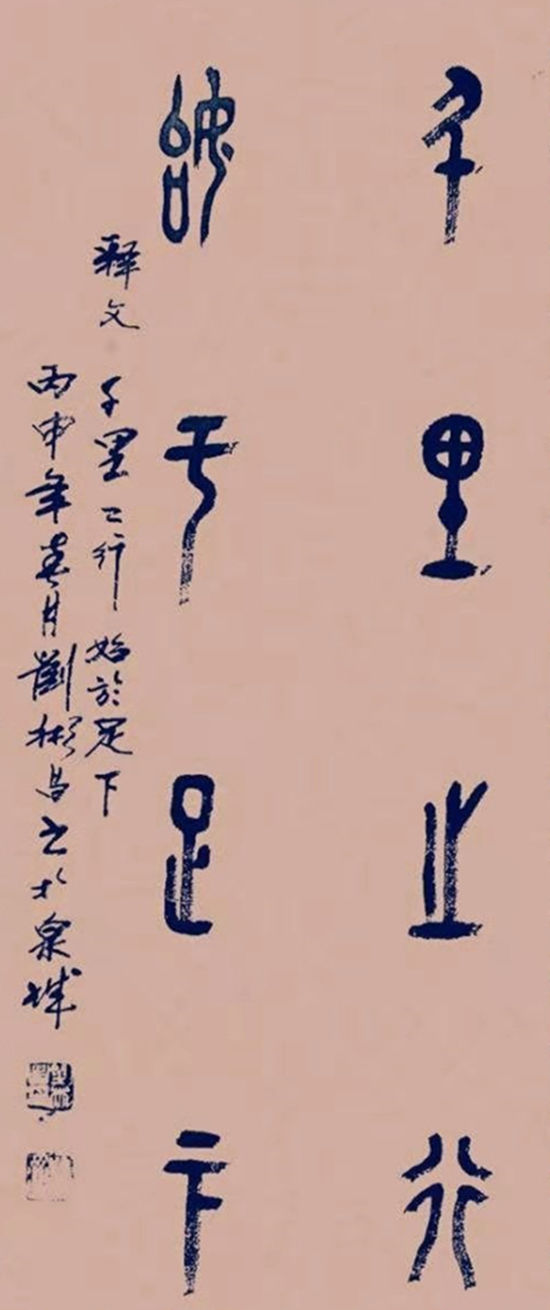 千里之行
始于足下
释文 千里之行 始於足下
丙申年春月劉彬昌书於泉城